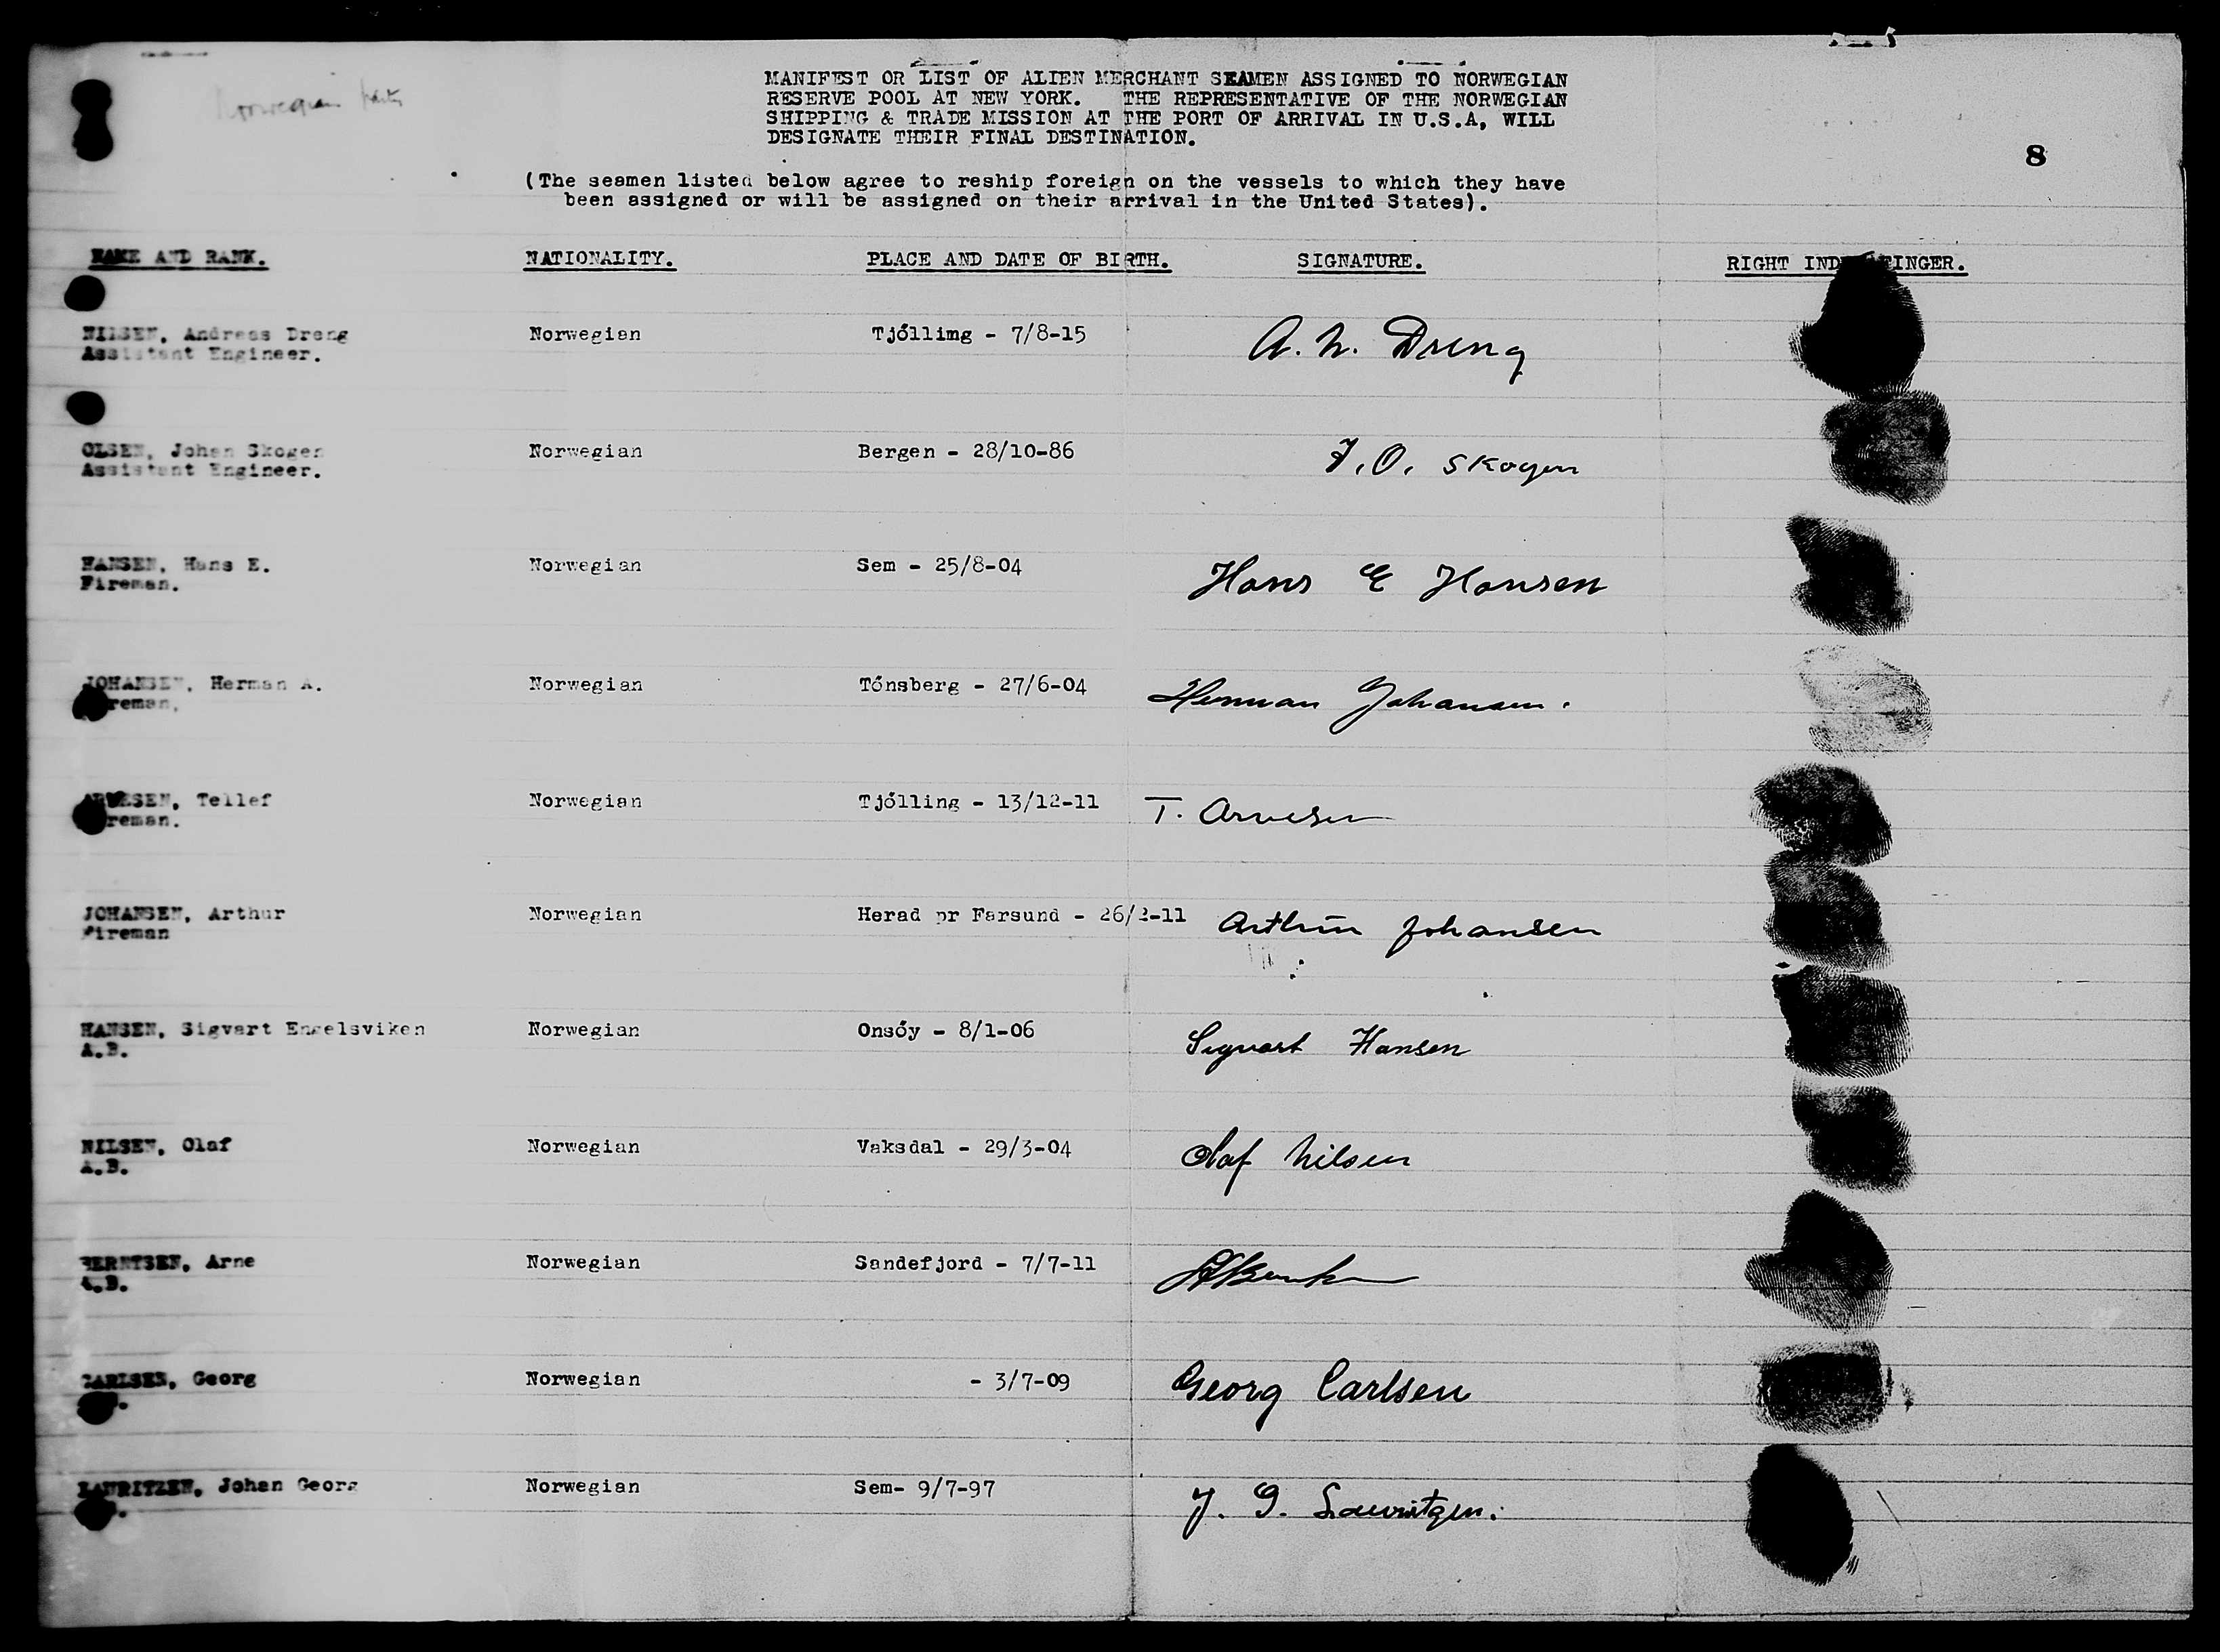 Norwegian
MANIFEST OR LIST OF ALIEN MERCHANT SEAMEN ASSIGNED TO NORWEGIAN
RESERVE POOL AT NEW YORK. THE REPRESENTATIVE OF THE NORWEGIAN
SHIPPING & TRADE MISSION AT THE PORT OF ARRIVAL IN U.S.A, WILL
DESIGNATE THEIR FINAL DESTINATION.
8
(The seamen listed below agree to reship foreign on the vessels to which they have
been assigned or will be assigned on their arrival in the United States).
NAME AND RANK. NATIONALITY. PLACE AND DATE OF BIRTH. SIGNATURE. RIGHT INDEX FINGER.
NILSEN, Andreas Dreng Norwegian Tjóllimg - 7/8-15 A. N. Dreng
Assistant Engineer.
OLSEN, Johan Skogen Norwegian Bergen - 28/10-86 J. O. Skogen
Assistant Engineer.
HANSEN, Hans E. Norwegian Sem - 25/8-04 Hans E Hansen
Fireman.
JOHANSEN, Herman A. Norwegian Tónsberg - 27/6-04 Herman Johansen.
Fireman.
ARVESEN, Tellef Norwegian Tjólling - 13/12-11 T. Arvesen
Fireman.
JOHANSEN, Arthur Norwegian Herad pr Farsund - 26/2-11 Arthur Johansen
Fireman
HANSEN, Sigvart Engelsviken Norwegian Onsóy - 8/1-06 Sigvart Hansen
A.B.
NILSEN, Olaf Norwegian Vaksdal - 29/3-04 Olaf Nilsen
A.B.
BERNTSEN, Arne Norwegian Sandefjord - 7/7-11
A.B.
CARLSEN, Georg Norwegian - 3/7-09 Georg Carlsen
LAURITZEN, Johan Georg Norwegian Sem- 9/7-97 J. G. Lauritzen.